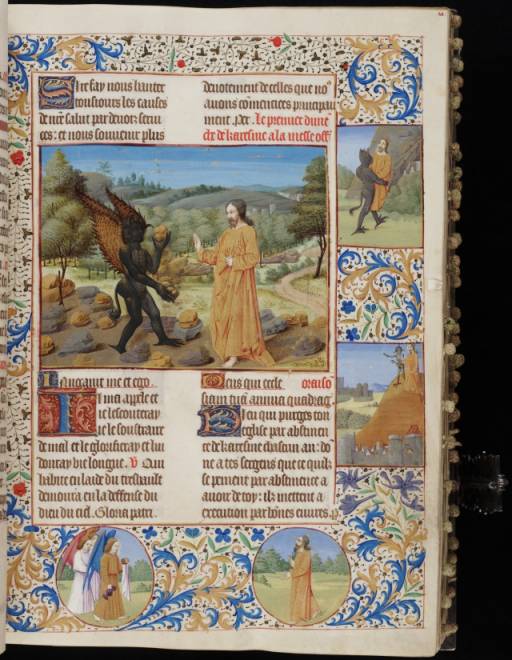 Sire fay nous hanter
tousiours les causes
de nrẽ salut par deuotz serui
ces: et nous souuient plus
deuotement de celles que no9
auons cōmencees principau
ment. Per. Le premier dimē
che de karesme a la messe off
Inuocauit me et ego.
Il m'a appelle et
ie lescouteray
ie le soustrairé
de mal et le glorifieray et lui
donray vie longue. V Qui
habite en laide du treshault
demoura en la deffense du
dieu du ciel. Gloria patri.
Deus qui eccle oraiso
siam tuā annua quadrag.
Dieu qui purges ton
eglise par abstinen
ce de karesme chascun an: dō
ne a tes sergens que ce quilz
se penent par abstinence a
auoir de toy: ilz mettent a
execution par bōnes euures. p